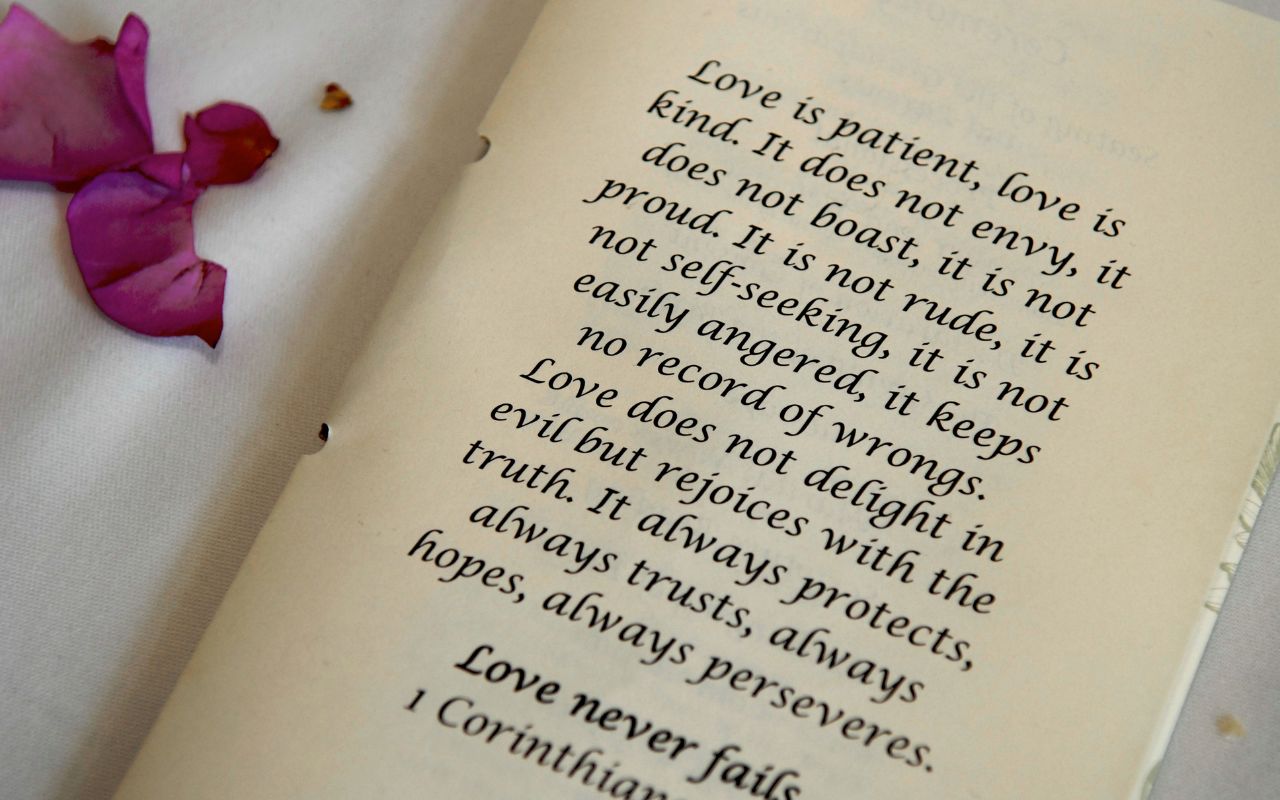 Love is patient, love is
kind. It does not envy, it
does not boast, it is not
proud. It is not rude, it is
not self-seeking, it is not
easily angered, it keeps
no record of wrongs.
Love does not delight in
evil but rejoices with the
truth. It always protects,
always trusts, always
hopes, always perseveres.
Love never fails
1 Corinthian